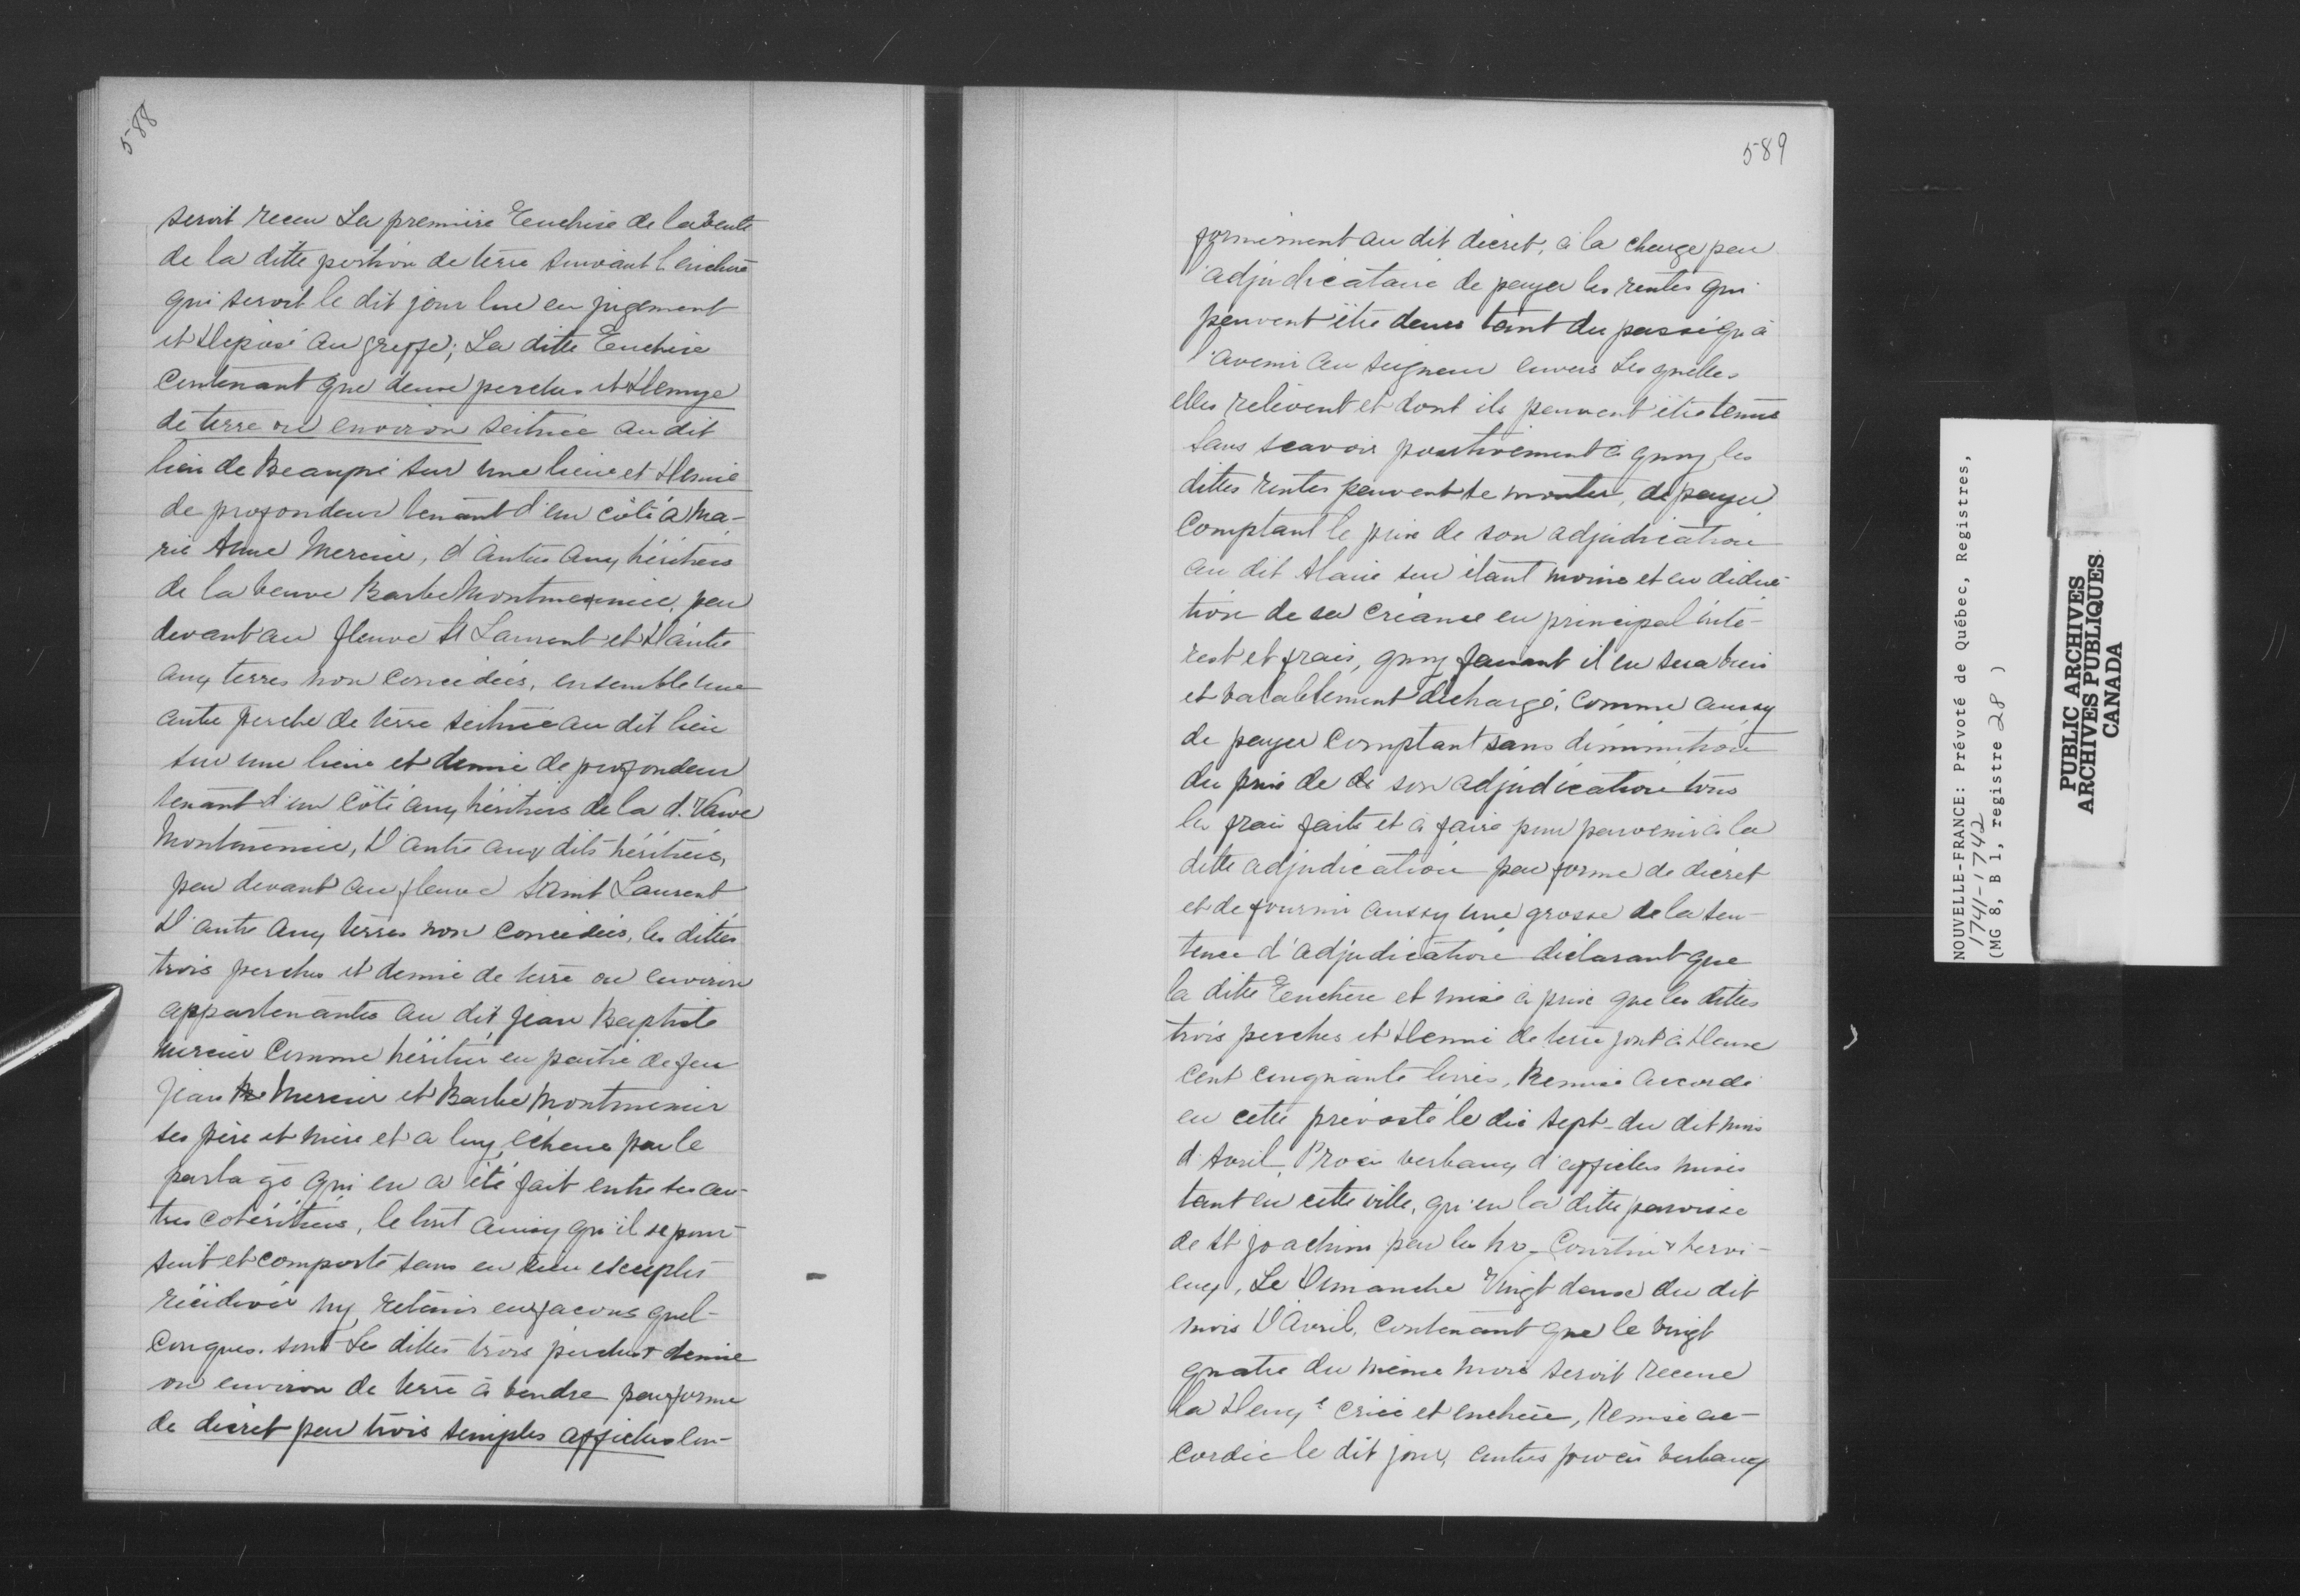 588
seroit receu La premiere Enchere de la vente
de la ditte portion de terre suivant l'enchere
qui seroit le dit jour lue en jugement
et deposé au greffe; La ditte Enchere
contenant que deux perches et demye
de terre ou environ scituée au dit
lieu de Beaupré sur une lieue et demie
de profondeur tenant d'un côté à Ma-
rie Anne Mercier, d'autre aux héritiers
de la veuve Barbe Montmenier, par
devant au fleuve St Laurent et d'autre
aux terres non concedées, ensemble une
autre perche de terre scituée au dit lieu
sur une lieue et demie de profondeur
tenant d'un côté aux héritiers de la d. Veuve
Montmenier, D'autre aux dits héritiers,
par devant au fleuve Saint Laurent
D'autre aux terres non concedées, les dittes
trois perches et demie de terre ou environ
appartenantes au dit Jean Baptiste
Mercier Comme héritier en partie de feu
Jean Mercier et Barbe Montmenier
ses père et mère et a luy échues par le
partage qui en a été fait entre ses au-
tres cohéritiers, le tout ainsy qu'il se pour-
suit et comporte sans en rien excepter
ny retenir en façons quel-
conques. sont Les dittes trois perches & demie
ou environ de terre à vendre par forme
de décret par trois simples affiches con-
589
formement au dit décret, à la charge par
l'adjudicataire de payer les rentes qui
peuvent être deues tant du passé qu'à
l'avenir au seigneur envers Lesquelles
elles relèvent et dont ils peuvent être tenus
sans scavoir positivement à quoy les
dittes rentes peuvent se monter, de payer
comptant le prix de son adjudication
au dit Alaire sur étant moins et en deduc-
tion de sa créance en principal inté-
rest et frais, quoy faisant il en sera bien
et valablement déchargé. Comme aussy
de payer comptant sans diminution
du prix de de son adjudication tous
les frais faits et à faire pour parvenir à la
ditte adjudication par forme de décret
et de fournir aussy une grosse de la sen-
tence d'adjudication déclarant que
la ditte Enchere et mise à prix que les dittes
trois perches et demie de terre font à deux
cent cinquante livres, Remise accordé
en cette prévosté le dix sept du dit mois
d'Avril, Procès verbaux d'affiches mises
tant en cette ville, qu'en la ditte paroisse
de St Joachim par les hrs Courtin &
Le Dimanche Vingt deux du dit
mois D'Avril, contenant que le vingt
quatre du même mois seroit receue
la deuxe criée et enchère, remise ac-
cordée le dit jour, autres procès verbaux
NOUVELLE-FRANCE: Prévoté de Québec, Registres,
1741-1742
(MG 8, B 1, registre 28 )
PUBLIC ARCHIVES
ARCHIVES PUBLIQUES
CANADA